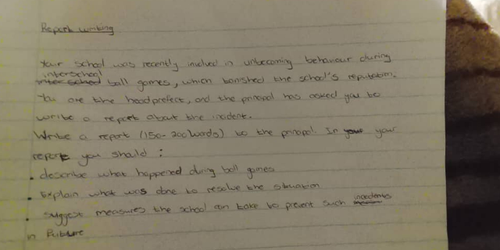 Report writing
Your school was recently involved in unbecoming behaviour during
interschool
ball games, which banished the school's reputation.
You are the headprefect, and the principal has asked you to
write a report about the incident.
Write a report (150-200 words) to the principal In your
report you should :
• describe what happened during ball games
• Explain what was done to resolve the situation
• suggest measures the school can take to prevent such incidents
in future